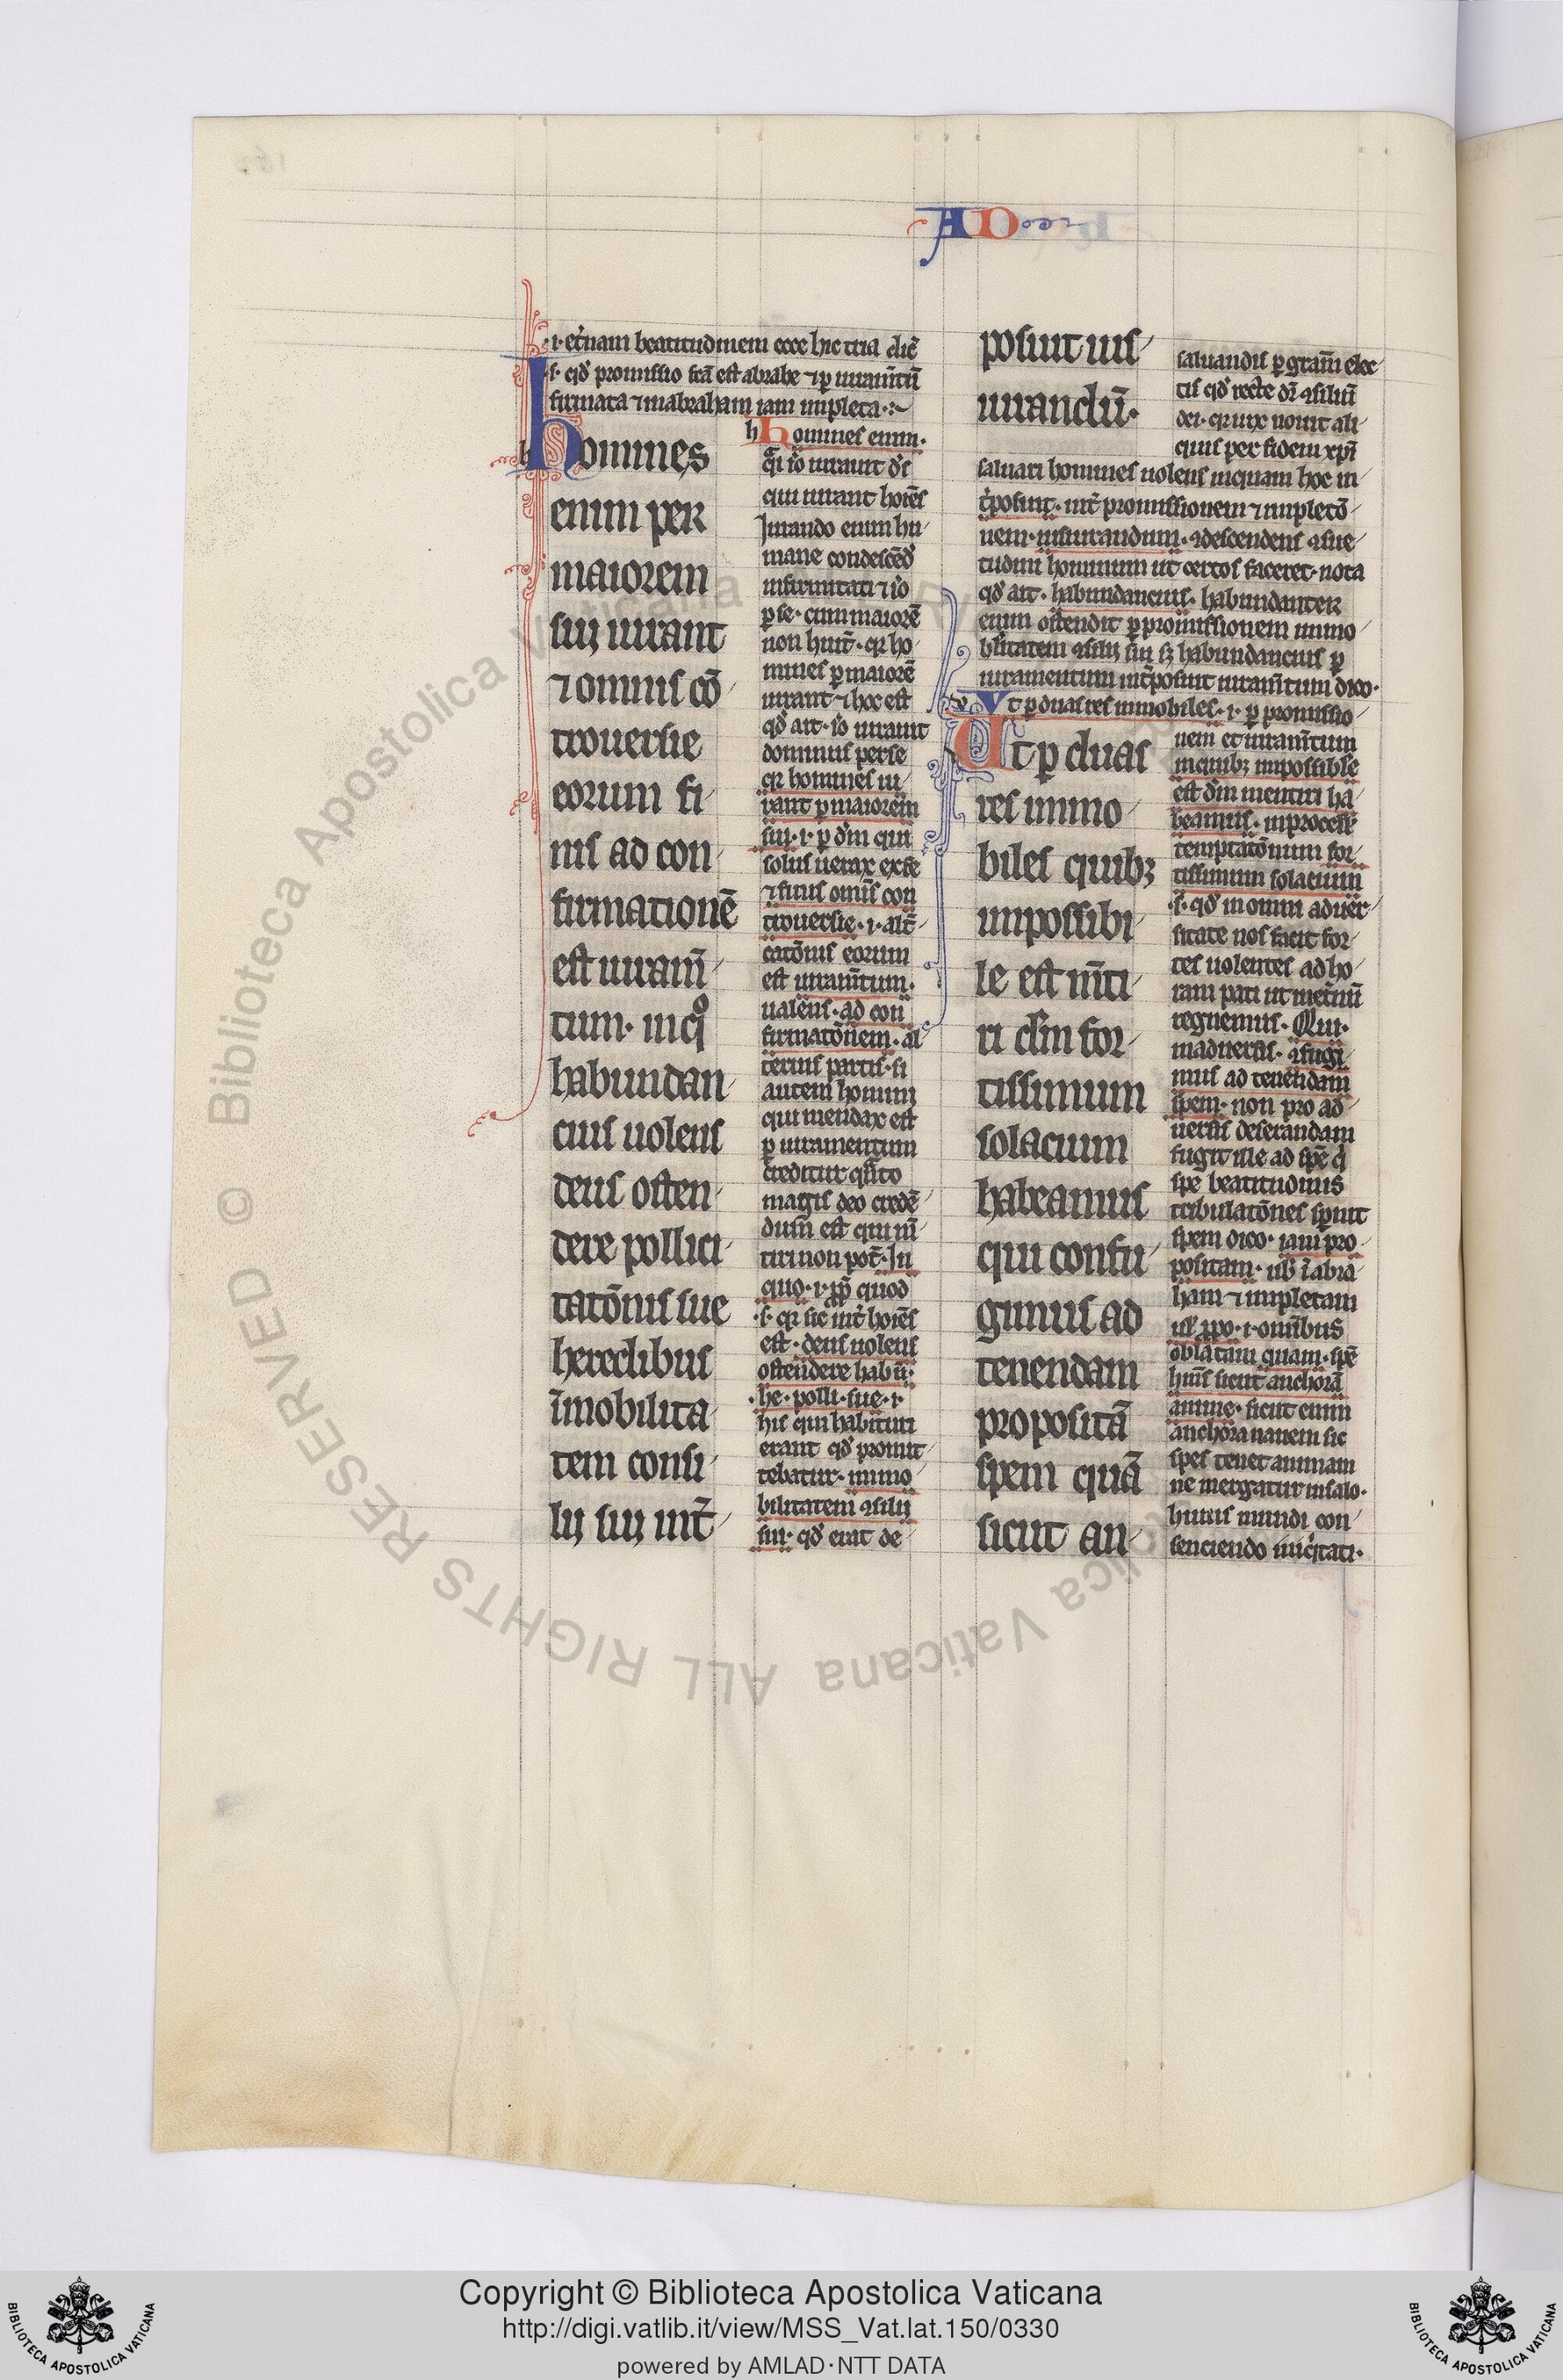 AD
.i. et̾nam beatitudinem ecce hic tria dic̄
.s. qd̾ promissio fc̄a est abrahe ⁊ ꝑ iuram̄tū
firmata ⁊ in abraham iam impleta.
homines
enim per
maiorem
suꝫ iurant
⁊ omnis cō
trouersie
eorum fi
nis ad con
firmationē
est iuram̄
tum. in qͦ
habundan
cius uolens
deus osten
dere pollici
tatōnis sue
heredibus
īmobilita
tem consi
lij sui int̄
homines enim.
qͣi iō iurauit ds̄
qui iurant hoīes
Iurando enim hu
mane condescēd̾
infirmitati ⁊ iō
ꝑ se. cum maiorē
non huit̄. qr ho
mines ꝑ maiorē
iurant ⁊ hoc est
qd̾ ait. iō iurauit
dominus per se
qr homines iu
rant ꝑ maiorem
sui. .i. ꝑ dm̄ qui
solus uerax ex se
⁊ finis omīs con
trouersie. .i. alt̄
catōnis eorum
est iuram̄tum.
ualens. ad con
firmatōnem. al
terius partis. si
autem homini
qui mendax est
ꝑ iuramentum
creditur qͣnto
magis deo credē
dum est qui m̄
tiri non pot̄. In
quo. .i. ꝓpt̄ quod
.s. qr sic int̄ hoīes
est. deus uolens
ostendere habū.
he. polli. sue. .i.
his qui habituri
erant qd̾ promit
tebatur. immo
bilitatem ꝯsilii
sui. qd̾ erat de
posuit ius
iurandū.
saluandis ꝑ gram̄ elec
tis qd̾ recte dr̄ ꝯsiliū
dei. qr uix nouit ali
quis per fidem xp̄i
saluari homines uolens inquam hoc in
t̾posuit. int̄ promissionem ⁊ impletō
nem. iusiurandum. ꝯdescendens ꝯsue
tudini hominum ut certos faceret. nota
qd̾ ait. habundancius. habundanter
enim ostendit ꝑ promissionem immo
bl̄itatem ꝯsilij sui sꝫ habundancius ꝑ
iuramentum int̄posuit iuram̄tum dico.
Vt ꝑ duas res immobiles. .i. ꝑ promissio
nem et iuram̄tum
in quibꝫ impossibile
est dm̄ mentiri ha
beamus. in processu
temptatōnum for
tissimum solacium
.s. qd̾ in omni aduer
sitate nos facit for
tes uolentes ad ho
ram pati ut in et̾nū
regnemus. Qui.
in aduersis. ꝯfugi
mus ad tenendam
spem. non pro ad
uersis deserandam
fugit ille ad spē qͥ
spe beatitudinis
tribulatōnes spnit
spem dico. iam pro
positam. ubꝫ ī abra
ham ⁊ impletam
uł ꝓpo. .i. omībus
oblatam quam. spē
hm̄s sicut anchorā
anime. sicut enim
anchora nauem sic
spes tenet animam
ne mergatur in salo.
huius mundi con
senciendo iniqͥtati.
Ut ꝑ duas
res immo
biles quibꝫ
impossibi
le est m̄ti
ri dm̄ for
tissimum
solacium
habeamus
qui confu
gimus ad
tenendam
propositā
spem quā
sicut an
© Biblioteca Apostolica Vaticana ALL RIGHTS RESERVED
Copyright © Biblioteca Apostolica Vaticana
http://digi.vatlib.it/view/MSS_Vat.lat.150/0330
powered by AMLAD·NTT DATA
BIBLIOTECA APOSTOLICA VATICANA
BIBLIOTECA APOSTOLICA VATICANA